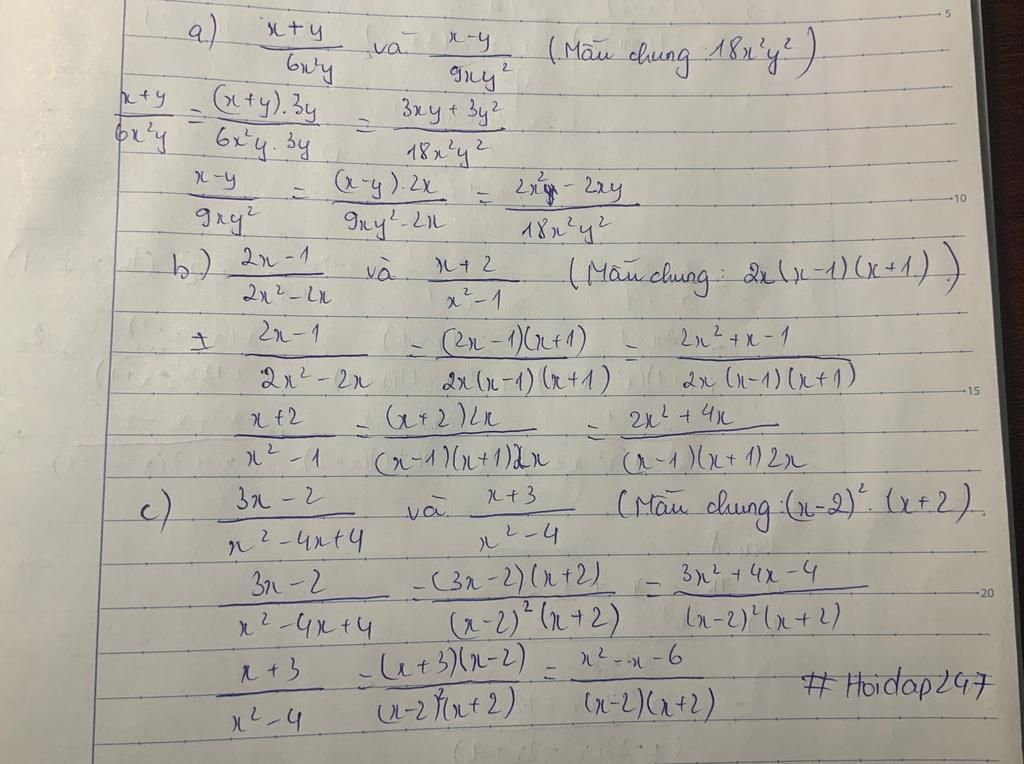 5
a) (x+y)/(6x²y) và (x-y)/(9xy²) (Mẫu chung: 18x²y²)
(x+y)/(6x²y) = ((x+y).3y)/(6x²y.3y) = (3xy+3y²)/(18x²y²)
(x-y)/(9xy²) = ((x-y).2x)/(9xy².2x) = (2x²-2xy)/(18x²y²)
10
b) (2x-1)/(2x²-2x) và (x+2)/(x²-1) (Mẫu chung: 2x(x-1)(x+1))
± (2x-1)/(2x²-2x) = ((2x-1)(x+1))/(2x(x-1)(x+1)) = (2x²+x-1)/(2x(x-1)(x+1))
15
(x+2)/(x²-1) = ((x+2)2x)/((x-1)(x+1)2x) = (2x²+4x)/((x-1)(x+1)2x)
c) (3x-2)/(x²-4x+4) và (x+3)/(x²-4) (Mẫu chung:(x-2)².(x+2)
(3x-2)/(x²-4x+4) = ((3x-2)(x+2))/((x-2)²(x+2)) = (3x²+4x-4)/((x-2)²(x+2))
20
(x+3)/(x²-4) = ((x+3)(x-2))/((x-2)²(x+2)) = (x²-x-6)/((x-2)(x+2))
#Hoidap247